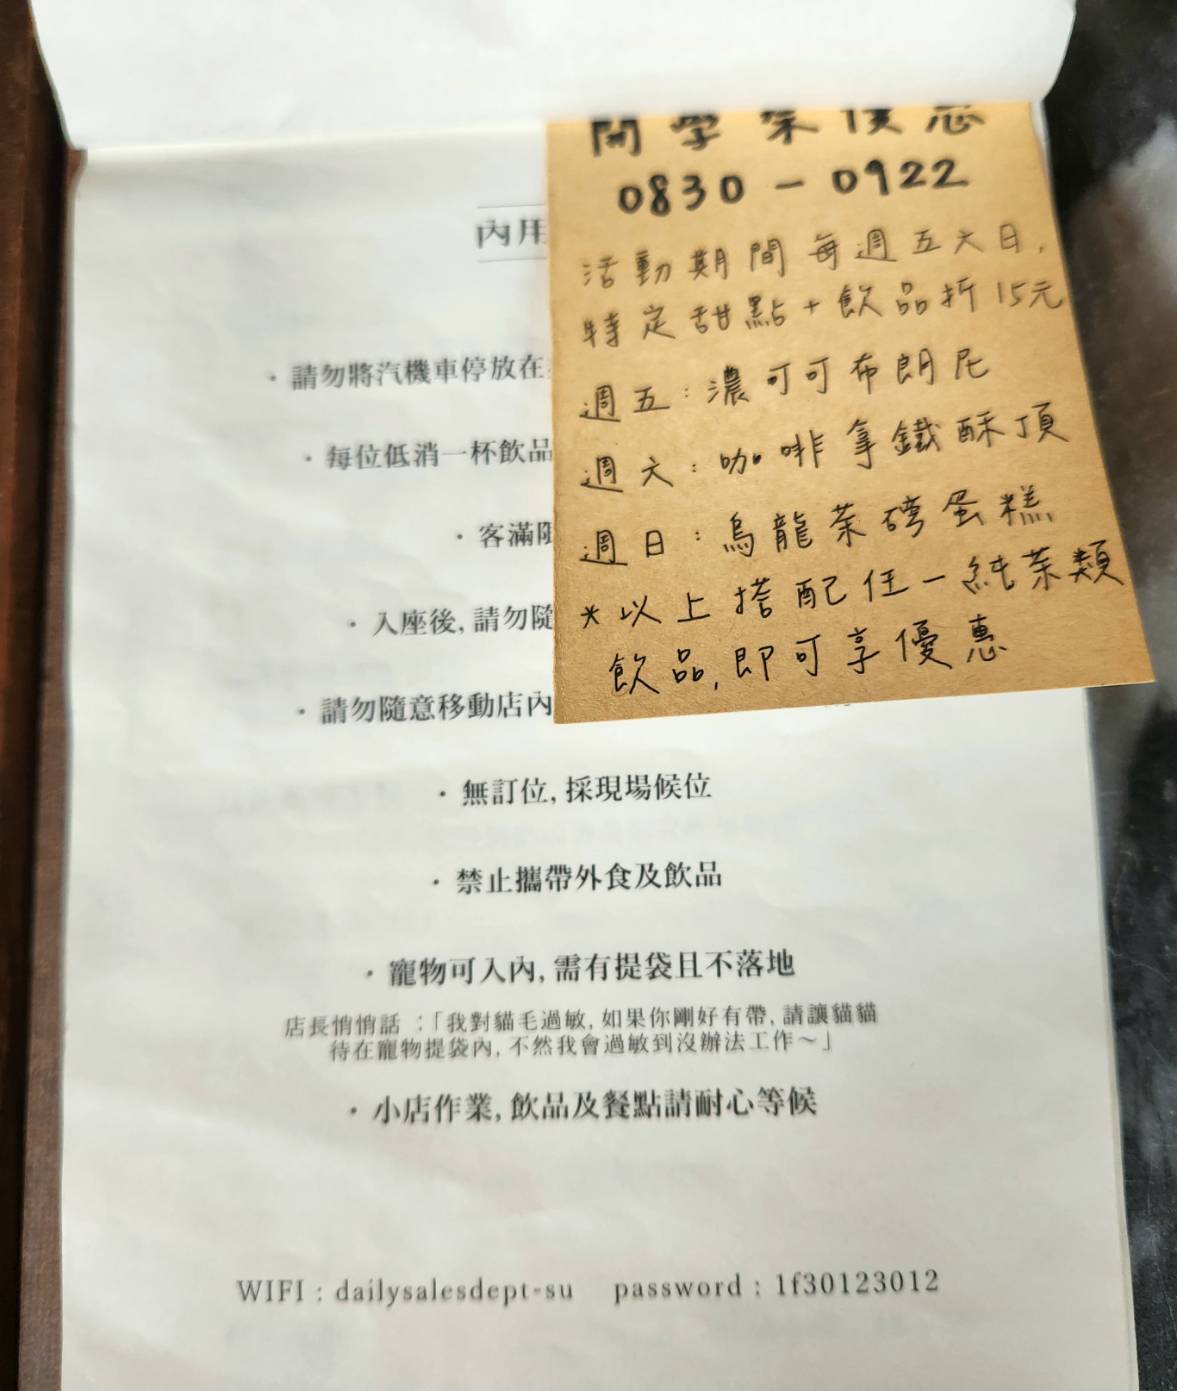 開學茶優惠
0830－0922
活動期間每週五六日,
特定甜點+飲品折15元
週五:濃可可布朗尼
週六:咖啡拿鐵酥頂
週日:烏龍茶磚蛋糕
*以上搭配任一純茶類
飲品,即可享優惠
內用
·請勿將汽機車停放在
·每位低消一杯飲品
·客滿限
·入座後,請勿隨
·請勿隨意移動店內
·無訂位,採現場候位
·禁止攜帶外食及飲品
·寵物可入內,需有提袋且不落地
店長悄悄話:「我對貓毛過敏,如果你剛好有帶,請讓貓貓
待在寵物提袋內,不然我會過敏到沒辦法工作~」
·小店作業,飲品及餐點請耐心等候
WIFI : dailysalesdept-su password : 1f30123012